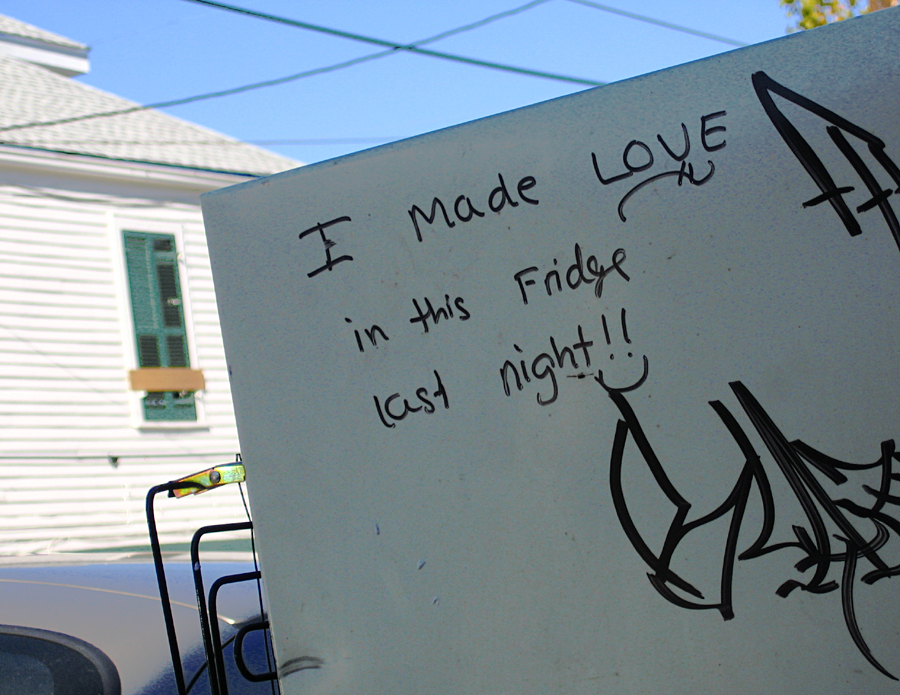 I Made LOVE
in this Fridge
last night!!